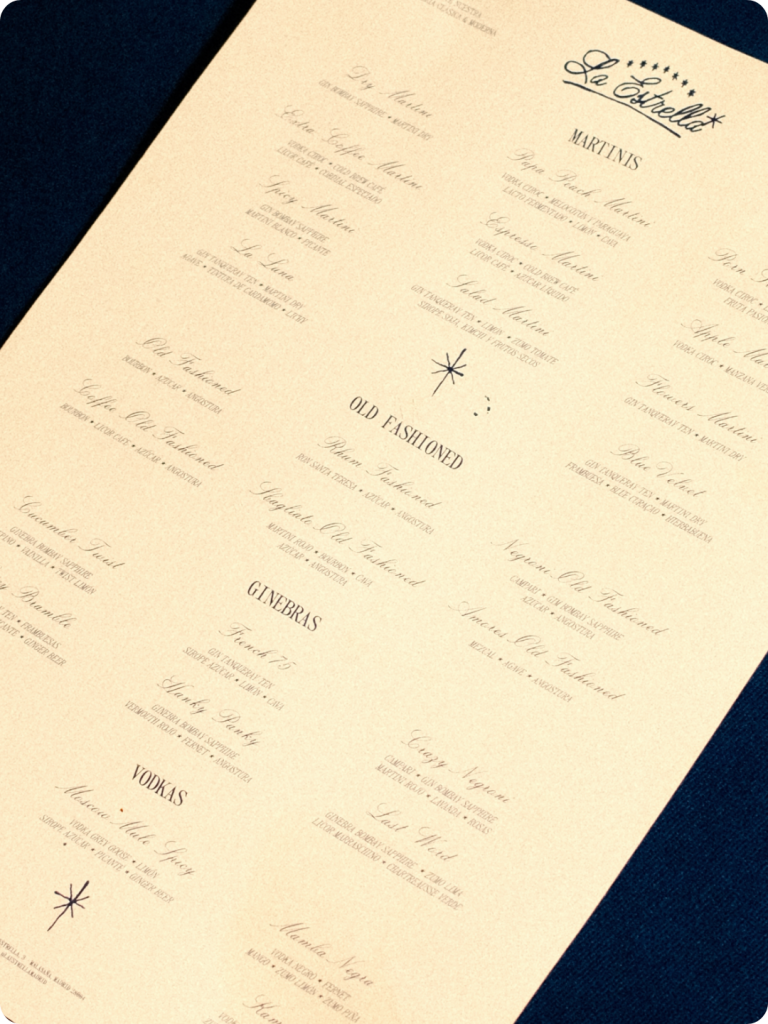 NUESTRA
CLÁSICA & MODERNA
La Estrella
MARTINIS
Dry Martini
GIN BOMBAY SAPPHIRE • MARTINI DRY
Extra Coffee Martini
VODKA CIROC • COLD BREW CAFE
LICOR CAFÉ • CORDIAL ESPECIADO
Spicy Martini
GIN BOMBAY SAPPHIRE
MARTINI BLANCO • PICANTE
La Luna
GIN TANQUERAY TEN • MARTINI DRY
AGAVE • TINTURA DE CARDAMOMO •
Papa Peach Martini
VODKA CIROC • MELOCOTÓN Y
LACTO FERMENTADO • LIMÓN • CAVA
Espresso Martini
VODKA CIROC • COLD BREW CAFE
LICOR CAFÉ • AZÚCAR LÍQUIDO
Salad Martini
GIN TANQUERAY TEN • LIMÓN • ZUMO TOMATE
SIROPE SOJA, KIMCHI Y FRUTOS SECOS
Porn
VODKA CIROC •
Apple Ma
VODKA CIROC • MANZANA
Flowers Martini
GIN TANQUERAY TEN • MARTINI DRY
Blue Velvet
GIN TANQUERAY TEN • MARTINI DRY
FRAMBUESA • BLUE CURAÇAO • HIERBABUENA
OLD FASHIONED
Old Fashioned
BOURBON • AZÚCAR • ANGOSTURA
Coffee Old Fashioned
BOURBON • LICOR CAFÉ • AZÚCAR • ANGOSTURA
Rhum Fashioned
RON SANTA TERESA • AZÚCAR • ANGOSTURA
Sbagliato Old Fashioned
MARTINI ROJO • BOURBON • CAVA
AZÚCAR • ANGOSTURA
Negroni Old Fashioned
CAMPARI • GIN BOMBAY SAPPHIRE
AZÚCAR • ANGOSTURA
Amores Old Fashioned
MEZCAL • AGAVE • ANGOSTURA
GINEBRAS
Cucumber Twist
GINEBRA BOMBAY SAPPHIRE
• VAINILLA • TWIST LIMÓN
Bramble
TEN • FRAMBUESAS
• GINGER BEER
French 75
GIN TANQUERAY TEN
SIROPE AZÚCAR • LIMÓN • CAVA
Hanky Panky
GINEBRA BOMBAY SAPPHIRE
VERMOUTH ROJO • FERNET • ANGOSTURA
Crazy Negroni
CAMPARI • GIN BOMBAY SAPPHIRE
MARTINI ROJO • LAVANDA • ROSAS
Last Word
GINEBRA BOMBAY SAPPHIRE • ZUMO LIMA
LICOR MARRASCHINO • CHARTREAUSSE VERDE
VODKAS
Moscow Mule Spicy
VODKA GREY GOOSE • LIMÓN
SIROPE AZÚCAR • PICANTE • GINGER BEER
Mamba Negra
VODKA NEGRO • FERNET
MANGO • ZUMO LIMÓN • ZUMO PIÑA